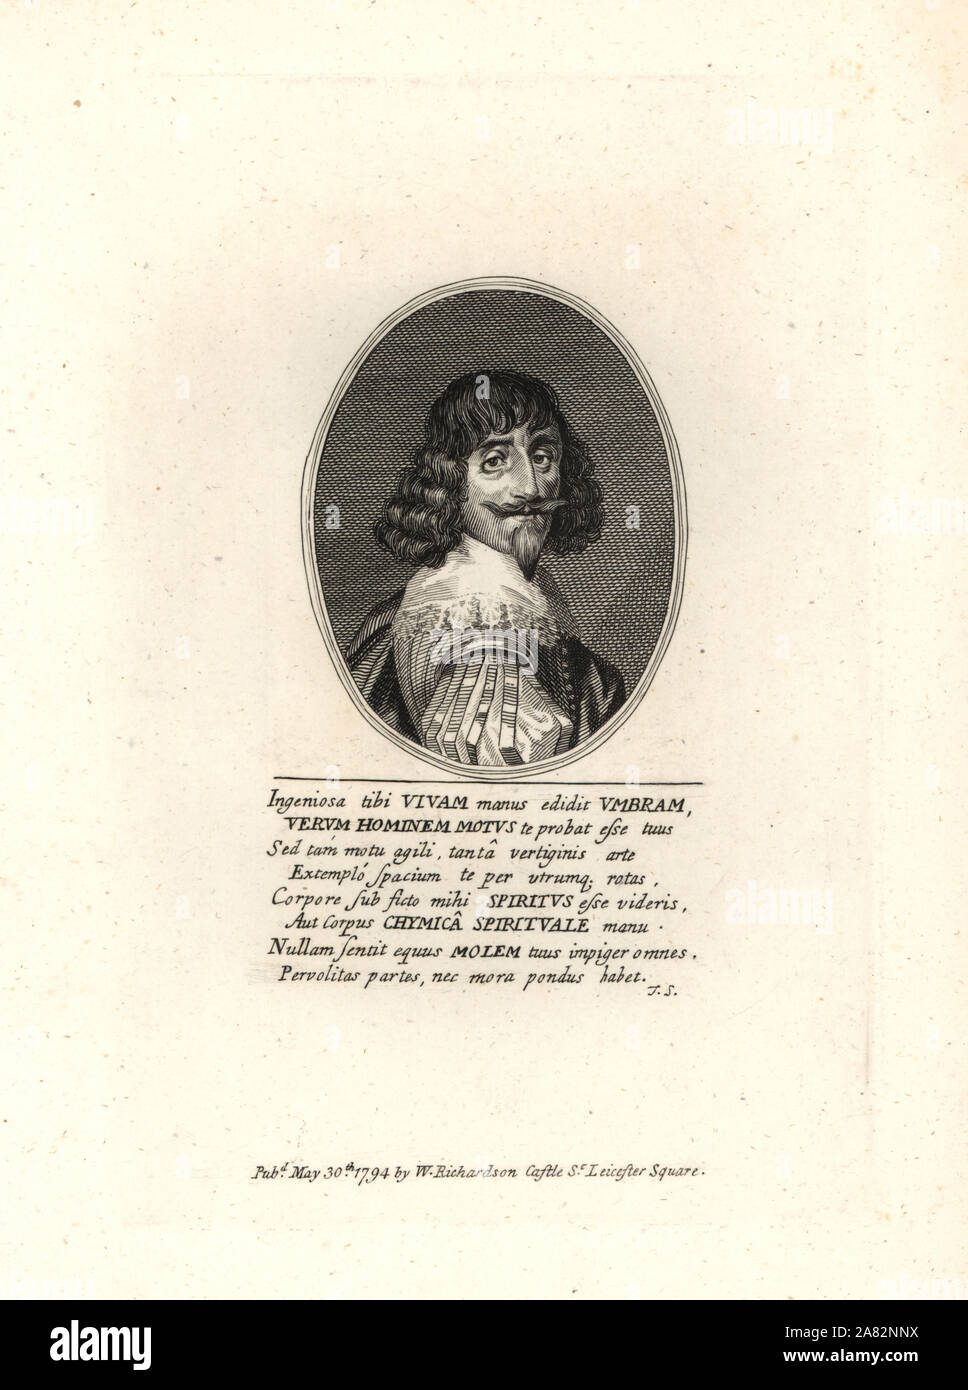 Ingeniosa tibi VIVAM manus edidit VMBRAM,
VERVM HOMINEM MOTVS te probat eſse tuus
Sed tam̀ motu agili, tantâ vertiginis arte
Extempló ſpacium te per utrumq. rotas,
Corpore ſub ficto mihi SPIRITVS eſse videris,
Aut Corpus CHYMICÂ SPIRITVALE manu.
Nullam ſentit equus MOLEM tuus impiger omnes,
Pervolitas partes, nec mora pondus habet.
J. S.
Pub.d May 30.th 1794 by W. Richardson Caſtle S.t Leiceſter Square.
alamy
Image ID: 2A82NNX
www.alamy.com